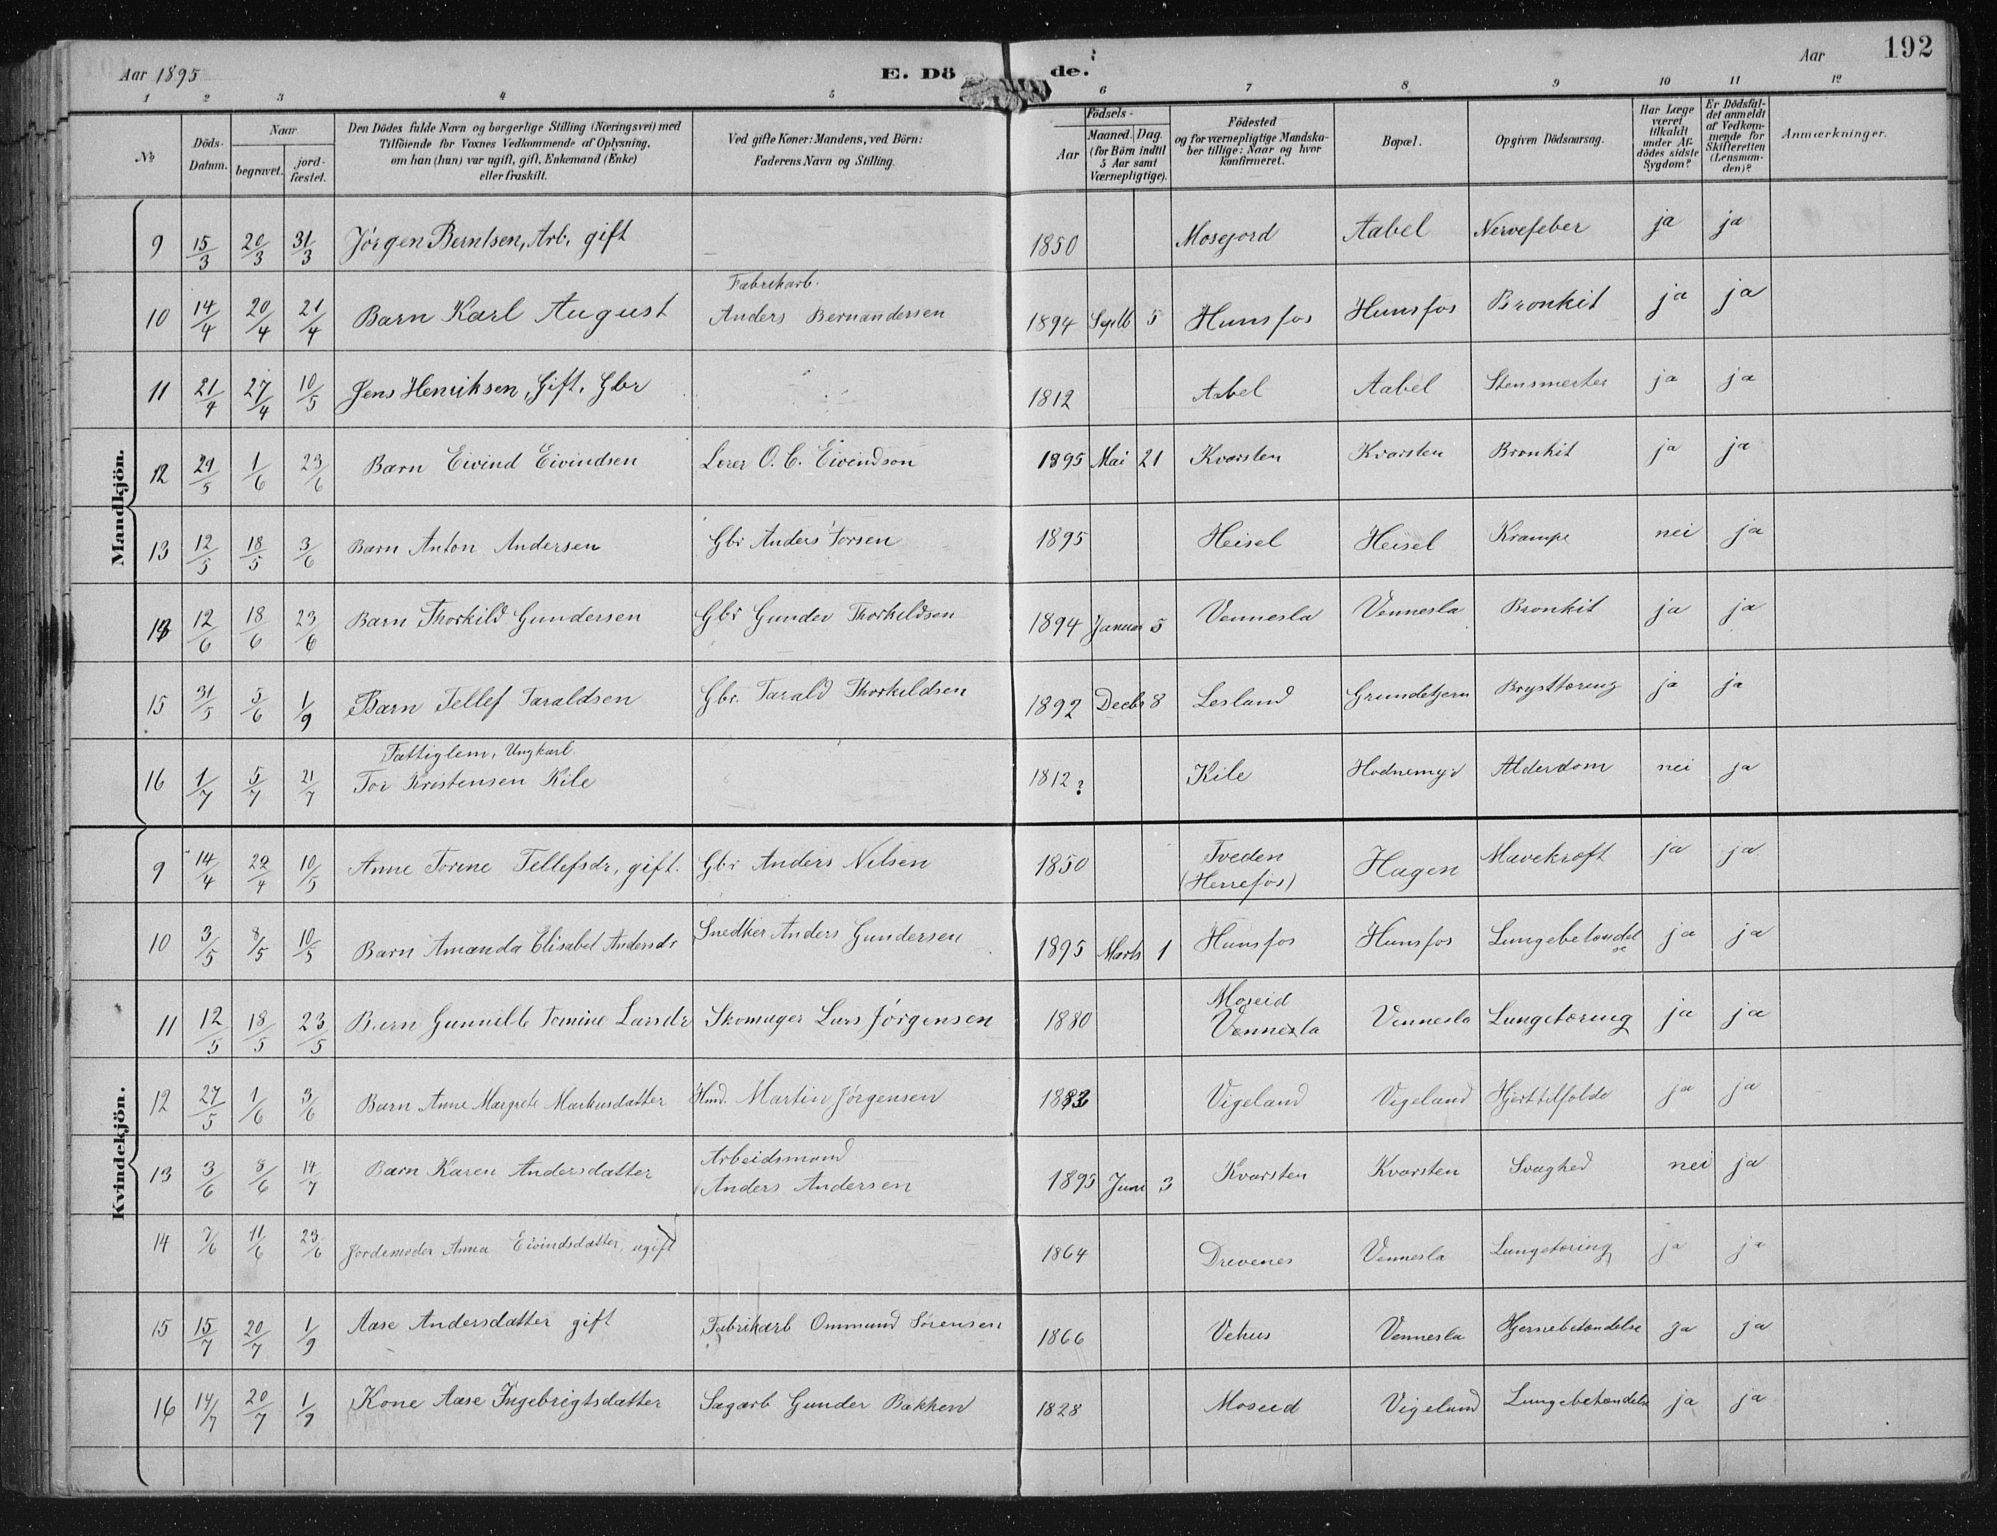 Aar 1895 E. Dö de. Aar 192
1 2 3 4 5 6 7 8 9 10 11 12
No Döds-Datum. Naar begravet. jord-fæstet. Den Dödes fulde Navn og borgerlige Stilling (Næringsvei) med Tilföiende for Voxnes Vedkommende af Oplysning, om han (hun) var ugift, gift, Enkemand (Enke) eller fraskilt. Ved gifte Koner: Mandens, ved Börn: Faderens Navn og Stilling. Födsels- Aar Maaned. Dag. (for Börn indtil 5 Aar samt Værnepligtige). Födested og for værnepligtige Mandskaber tillige: Naar og hvor konfirmeret. Bopæl. Opgiven Dödsaarsag. Har Læge været tilkaldt under Afdödes sidste Sygdom? Er Dödsfaldet anmeldt af Vedkommende for Skifteretten (Lensmanden)? Anmærkninger.
Mandkjön.
9 15/3 20/3 31/3 Jørgen Berntsen, Arb, gift 1850 Mosejord Aabel Nervefeber ja ja
10 14/4 20/4 21/4 Barn Karl August Fabrikarb. Anders Bernandersen 1894 Septb 5 Hunsfos Hunsfos Bronkit ja ja
11 21/4 27/4 10/5 Jens Henriksen, Gift, Gbr 1812 Aabel Aabel Stensmerter ja ja
12 29/5 1/6 23/6 Barn Eivind Eivindsen Lærer O. C. Eivindson 1895 Mai 21 Kvarsten Kvarsten Bronkit ja ja
13 12/5 18/5 3/6 Barn Anton Andersen Gbr Anders Torsen 1895 Heisel Heisel Krampe nei ja
12/6 18/6 23/6 Barn Thorkild Gundersen Gbr Gunder Thorkildsen 1894 Januar 5 Vennesla Vennesla Bronkit ja ja
15 31/5 5/6 1/9 Barn Tellef Taraldsen Gbr. Tarald Thorkildsen 1892 Decbr 8 Lesland Grundetjern Brysttæring ja ja
16 1/7 5/7 21/7 Fattiglem, Ungkarl. Tor Kristensen Kile 1812? Kile Hodnemyr Alderdom nei ja
Kvindekjön.
9 14/4 29/4 10/5 Anne Torine Tellefsdr, gift. Gbr Anders Nilsen 1850 Tveden (Herrefos) Hagen Mavekræft ja ja
10 3/5 8/5 10/5 Barn Amanda Elisabet Andersdr Snedker Anders Gundersen 1895 Marts 1 Hunsfos Hunsfos Lungebetændelse ja ja
11 12/5 18/5 23/5 Barn Gunnild Tomine Larsdr Skomager Lars Jørgensen 1880 Moseid Vennesla Vennesla Lungetæring ja ja
12 27/5 1/6 3/6 Barn Anne Margrete Markusdatter Hmd. Martin Jørgensen Vigeland Vigeland Hjerttilfælde ja ja
13 3/6 8/6 14/7 Barn Karen Andersdatter Arbeidsmand Anders Andersen 1895 Juni 3 Kvarsten Kvarsten Svaghed nei ja
14 7/6 11/6 23/6 Jordemoder Anna Eivindsdatter, ugift 1864 Drevenes Vennesla Lungetæring ja ja
15 15/7 20/7 1/9 Aase Andersdatter gift Fabrikarb Ommund Sørensen 1866 Vehus Vennesla Hjernebetændelse ja ja
16 14/7 20/7 1/9 Kone Aase Ingebrigtsdatter Sagarb Gunder Bakken 1828 Moseid Vigeland Lungebetændelse ja ja